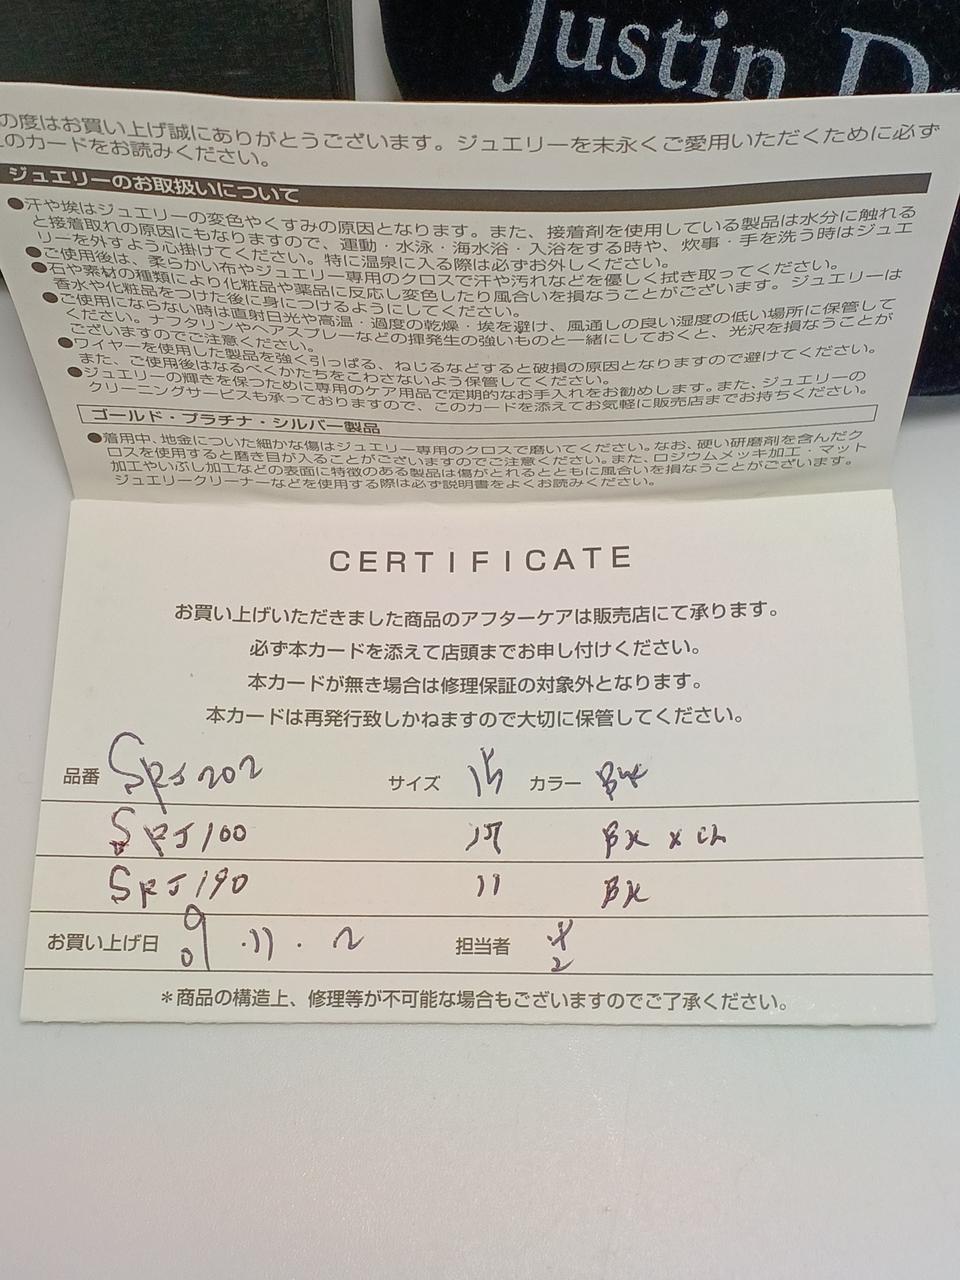 Justin D
の度はお買い上げ誠にありがとうございます。ジュエリーを末永くご愛用いただくために必ず
このカードをお読みください。
ジュエリーのお取扱いについて
●汗や埃はジュエリーの変色やくすみの原因となります。また、接着剤を使用している製品は水分に触れる
と接着取れの原因にもなりますので、運動・水泳・海水浴・入浴をする時や、炊事・手を洗う時はジュエ
リーを外すよう心掛けてください。特に温泉に入る際は必ずお外しください。
●ご使用後は、柔らかい布やジュエリー専用のクロスで汗や汚れなどを優しく拭き取ってください。
●石や素材の種類により化粧品や薬品に反応し変色したり風合いを損なうことがございます。ジュエリーは
香水や化粧品をつけた後に身につけるようにしてください。
●ご使用にならない時は直射日光や高温・過度の乾燥・埃を避け、風通しの良い湿度の低い場所に保管して
ください。ナフタリンやヘアスプレーなどの揮発生の強いものと一緒にしておくと、光沢を損なうことが
ございますのでご注意ください。
●ワイヤーを使用した製品を強く引っぱる、ねじるなどすると破損の原因となりますので避けてください。
また、ご使用後はなるべくかたちをこわさないよう保管してください。
●ジュエリーの輝きを保つために専用のケア用品で定期的なお手入れをお勧めします。また、ジュエリーの
クリーニングサービスも承っておりますので、このカードを添えてお気軽に販売店までお持ちください。
ゴールド・プラチナ・シルバー製品
●着用中、地金についた細かな傷はジュエリー専用のクロスで磨いてください。なお、硬い研磨剤を含んだク
ロスを使用すると磨き目が入ることがございますのでご注意ください。また、ロジウムメッキ加工・マット
加工やいぶし加工などの表面に特徴のある製品は傷がとれるとともに風合いを損なうことがございます。
ジュエリークリーナーなどを使用する際は必ず説明書をよくお読みください。
CERTIFICATE
お買い上げいただきました商品のアフターケアは販売店にて承ります。
必ず本カードを添えて店頭までお申し付けください。
本カードが無き場合は修理保証の対象外となります。
本カードは再発行致しかねますので大切に保管してください。
品番 SRJ202 サイズ 15 カラー BK
SRJ100 17 BK x
SRJ190 11 BK
お買い上げ日 09.11.2 担当者
＊商品の構造上、修理等が不可能な場合もございますのでご了承ください。